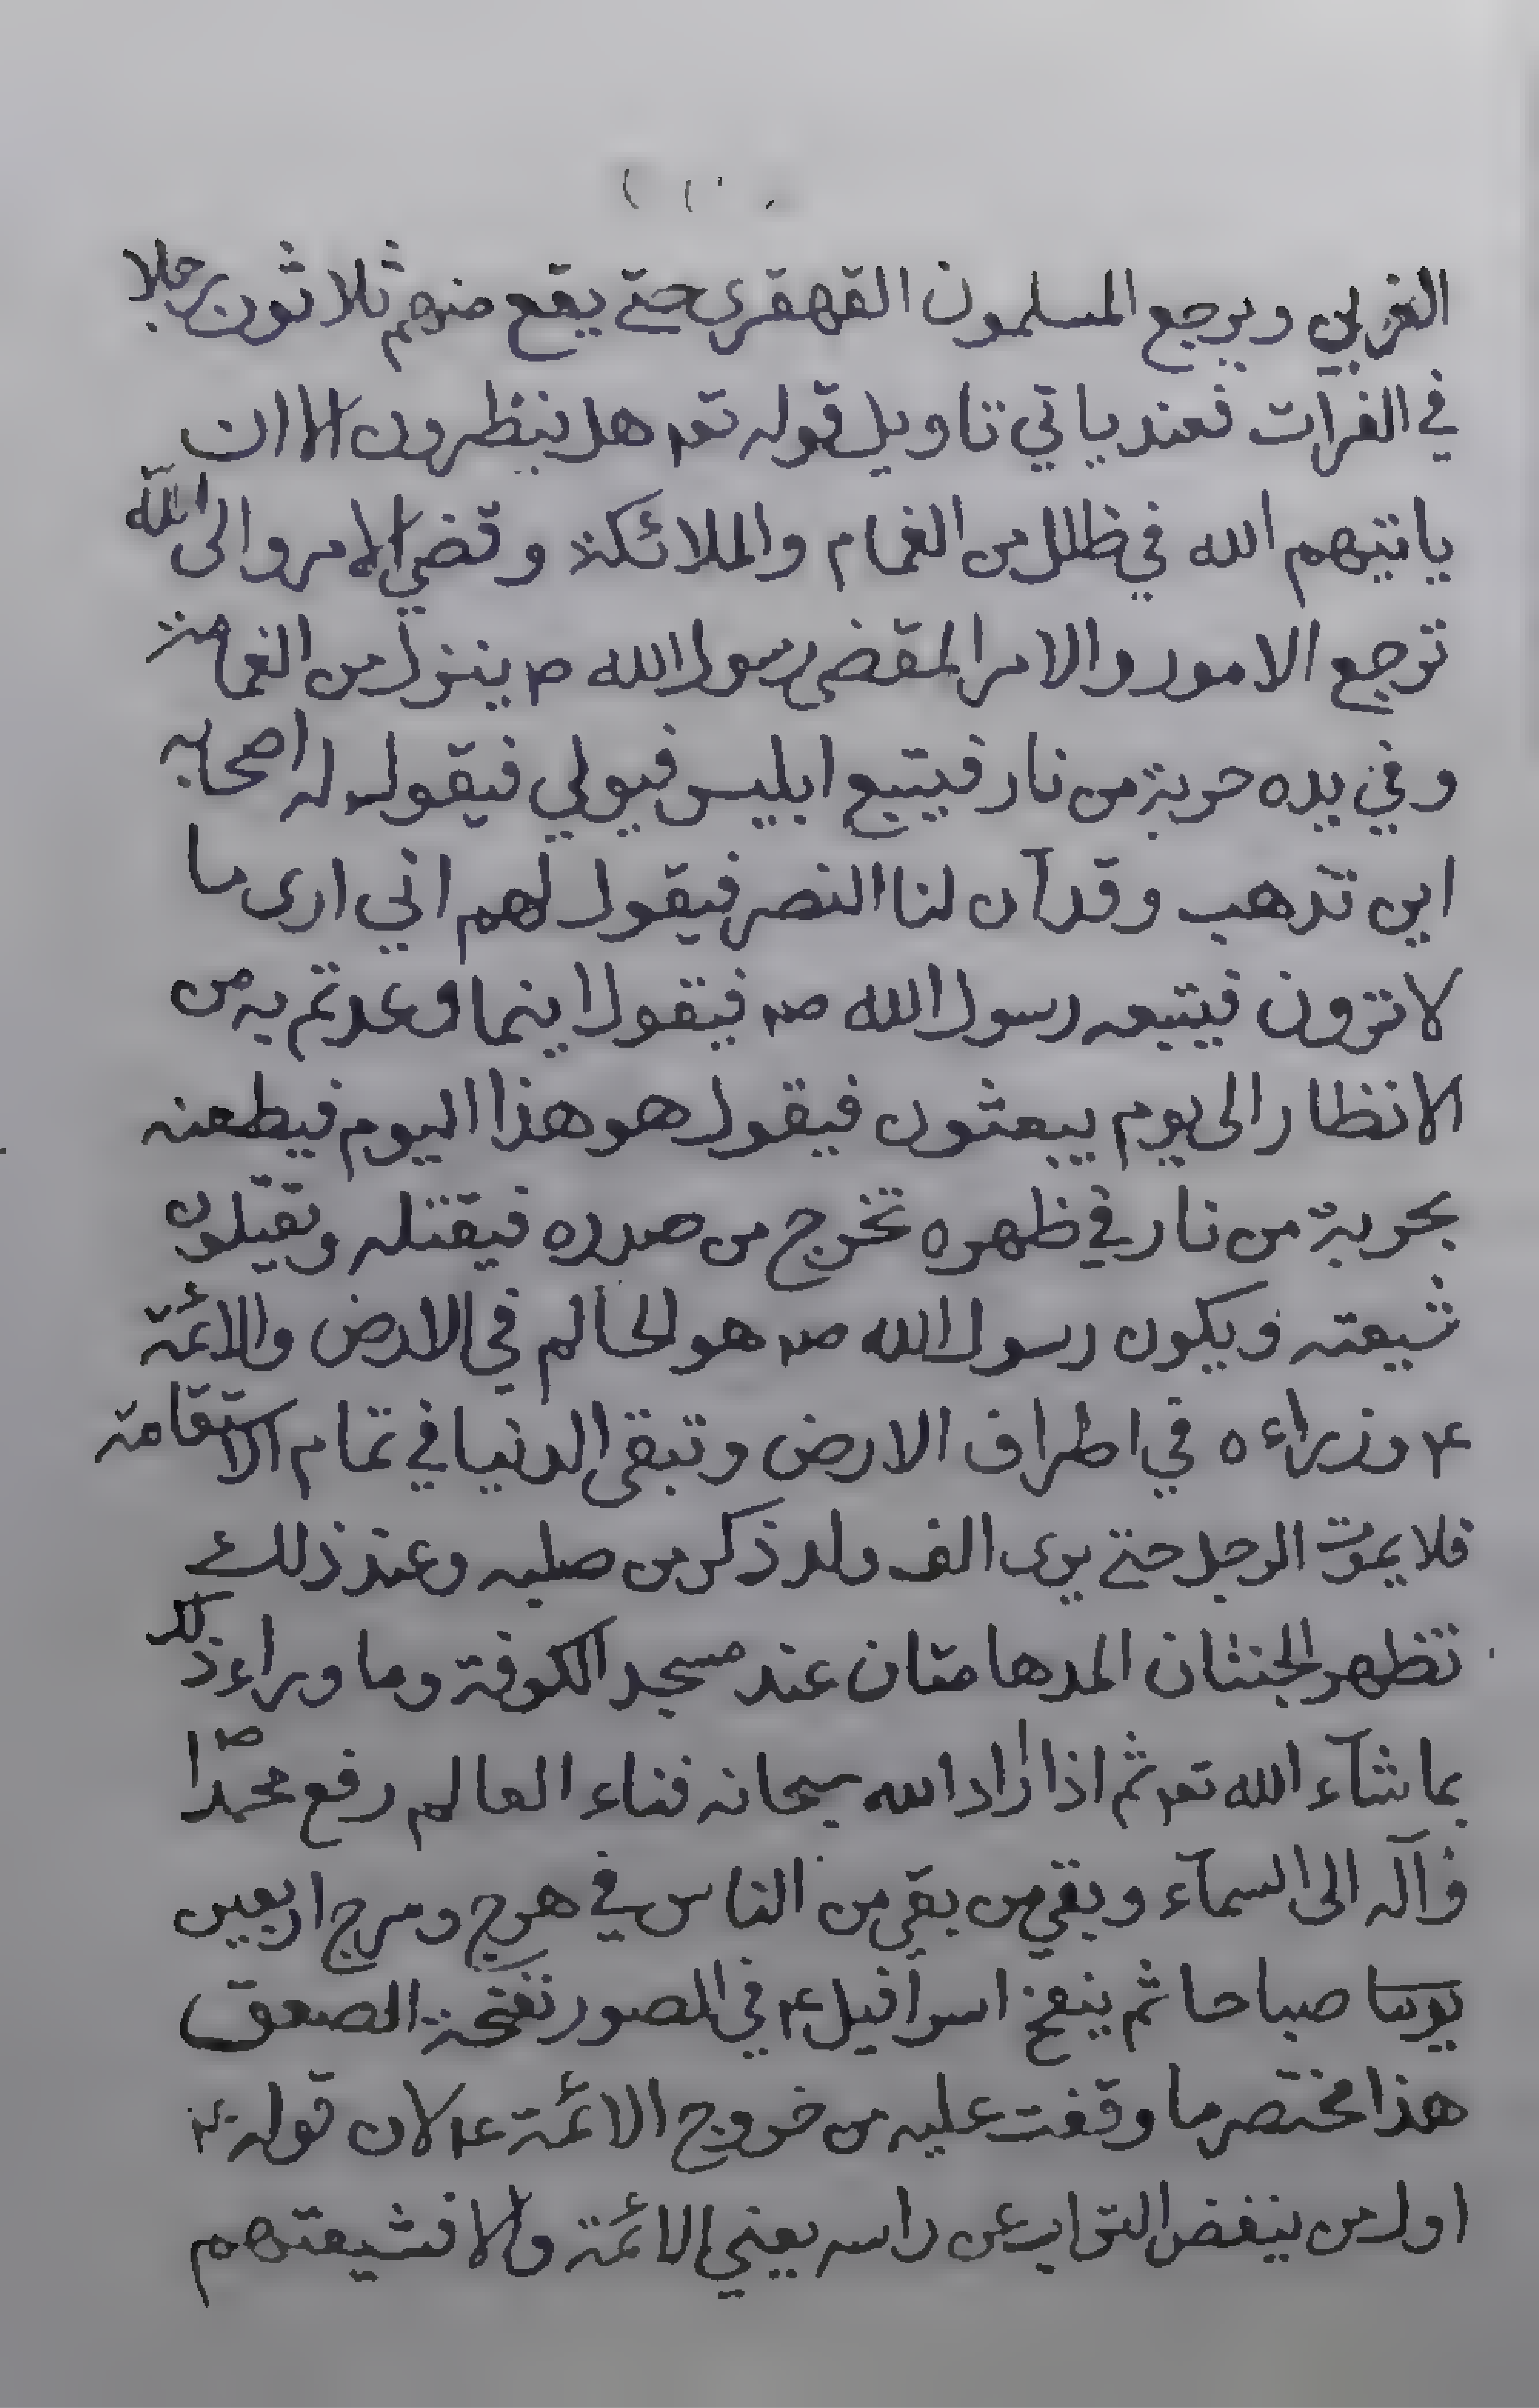 الغربي ويرجع المسلمون القهقرى حتى يقع منهم ثلاثون رجلا
في الفرات فعند ياتي تاويل قوله تعه هل ينظرون الا ان
ياتيهم الله في ظلل من الغمام والملائكة وقضي الامر والى الله
ترجع الامور والامر المقضى رسول الله ص ينزل من الغمامة
وفي يده حربة من نار فيتبع ابليس فيولي فيقول له اصحابه
اين تذهب وقد آن لنا النصر فيقول لهم اني ارى ما
لا ترون فيتبعه رسول الله صه فيقول اينما وعدتم به من
الانظار الى يوم يبعثون فيقول هو هذا اليوم فيطعنه
بحربة من نار في ظهره تخرج من صدره فيقتله ويقتلون
شيعته ويكون رسول الله صه هو الحاكم في الارض والائمة
ع وزراءه في اطراف الارض وتبقى الدنيا في تمام الاستقامة
فلا يموت الرجل حتى يرى الف ولد ذكر من صلبه وعند ذلك
تظهر الجنتان المدهامتان عند مسجد الكوفة وما وراء ذلك
بما شآء الله تعه ثم اذا اراد الله سبحانه فناء العالم رفع محمّدا ص
وآله الى السمآء ويقي من بقي من الناس في هرج ومرج اربعين
يوما صباحا ثم ينفخ اسرافيل ع في الصور نفخة الصعق
هذا مختصر ما وقفت عليه من خروج الائمة ع لان قوله ع
اول من ينفض التراب عن راسه يعني الائمة والا فشيعتهم